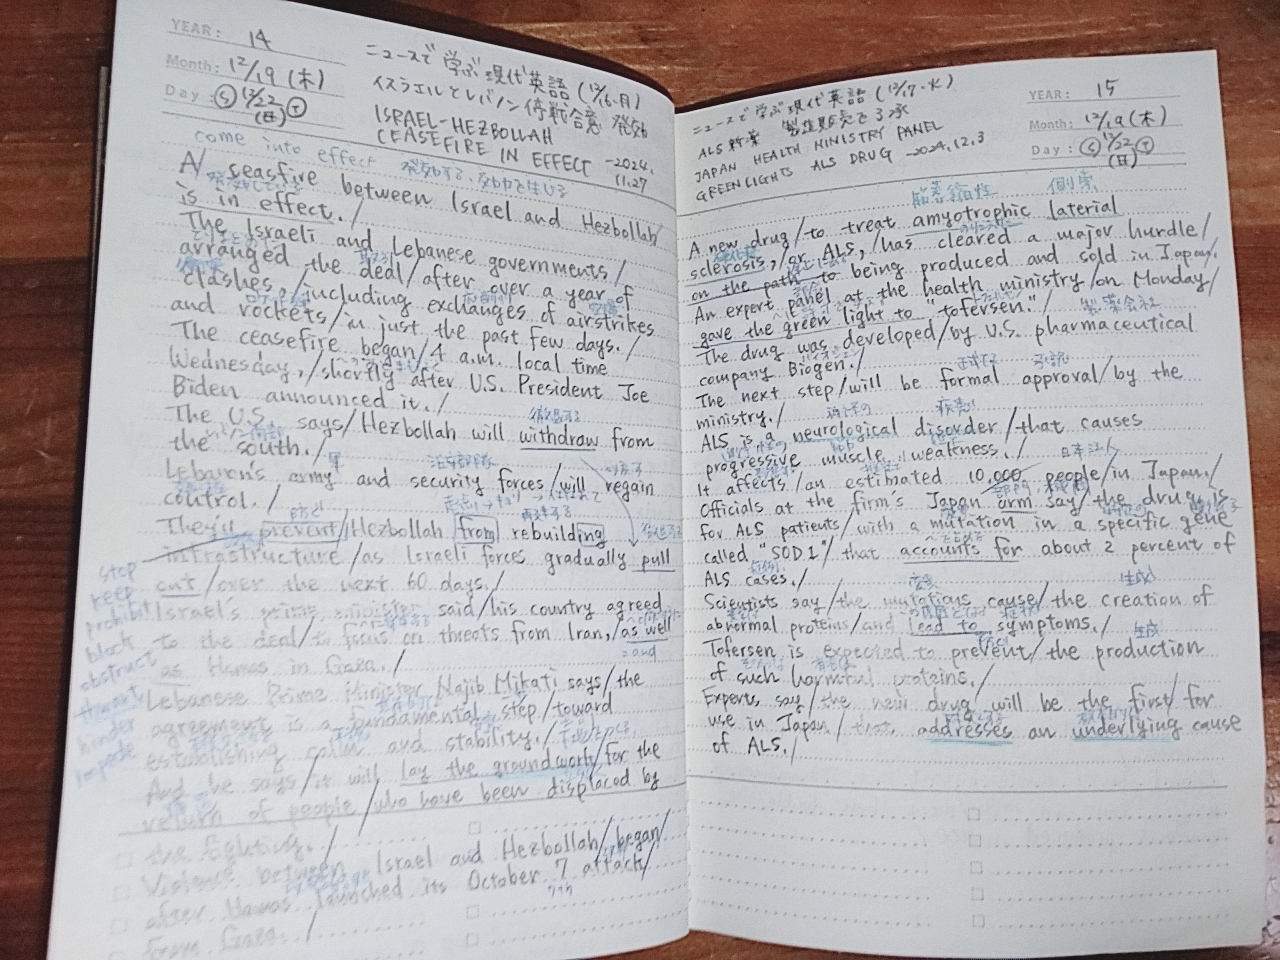 YEAR: 14
Month: 12/19 (木)
Day: 12/22 (日)
ニュースで学ぶ現代英語 (12/16・月)
イスラエルとレバノン 停戦合意 発効
ISRAEL-HEZBOLLAH
CEASEFIRE IN EFFECT -2024.
11.27
come into effect 発効する、効力を生じる
A/ ceasefire between Israel and Hezbollah/
is in effect./
The Israeli and Lebanese governments/
arranged the deal/after over a year of
clashes,/including exchanges of airstrikes
and rockets/in just the past few days./
The ceasefire began/4 a.m. local time
Wednesday,/shortly after U.S. President Joe
Biden announced it./
撤退する
The U.S. says/Hezbollah will withdraw from
the south./
軍 治安部隊
Lebanon's army and security forces/will regain
control./
They'll prevent/Hezbollah from rebuilding
infrastructure/as Israeli forces gradually pull
out/over the next 60 days./
stop
keep
prohibit
block
obstruct
thwart
hinder
impede
Israel's prime minister said/his country agreed
to the deal/to focus on threats from Iran,/as well
=and
as Hamas in Gaza./
Lebanese Prime Minister Najib Mikati says/the
agreement is a fundamental step/toward
establishing calm and stability./
And he says/it will lay the groundwork/for the
return of people/who have been displaced by
the fighting./
Violence between Israel and Hezbollah/began/
after Hamas launched its October 7 attack/
from Gaza./
ニュースで学ぶ現代英語 (12/17・火)
ALS新薬 製造販売を了承
JAPAN HEALTH MINISTRY PANEL
GREENLIGHTS ALS DRUG -2024.12.3
YEAR: 15
Month: 12/19 (木)
Day: 12/22 (日)
筋萎縮性 側索
A new drug/to treat amyotrophic laterial
sclerosis,/or ALS,/has cleared a major hurdle/
on the path to being produced and sold in Japan./
An expert panel at the health ministry/on Monday/
gave the green light to "tofersen."/
製薬会社
The drug was developed/by U.S. pharmaceutical
company Biogen./
正式な 承認
The next step/will be formal approval/by the
ministry./
神経の 疾患
ALS is a neurological disorder/that causes
progressive muscle weakness./
It affects/an estimated 10,000 people/in Japan./
Officials at the firm's Japan arm say/the drug is
for ALS patients/with a mutation in a specific gene
called "SOD1"/that accounts for about 2 percent of
ALS cases./
変異 生成
Scientists say/the mutations cause/the creation of
abnormal proteins/and lead to symptoms./
生成
Tofersen is expected to prevent/the production
of such harmful proteins./
Experts say/the new drug will be the first/for
use in Japan/that addresses an underlying cause
of ALS./